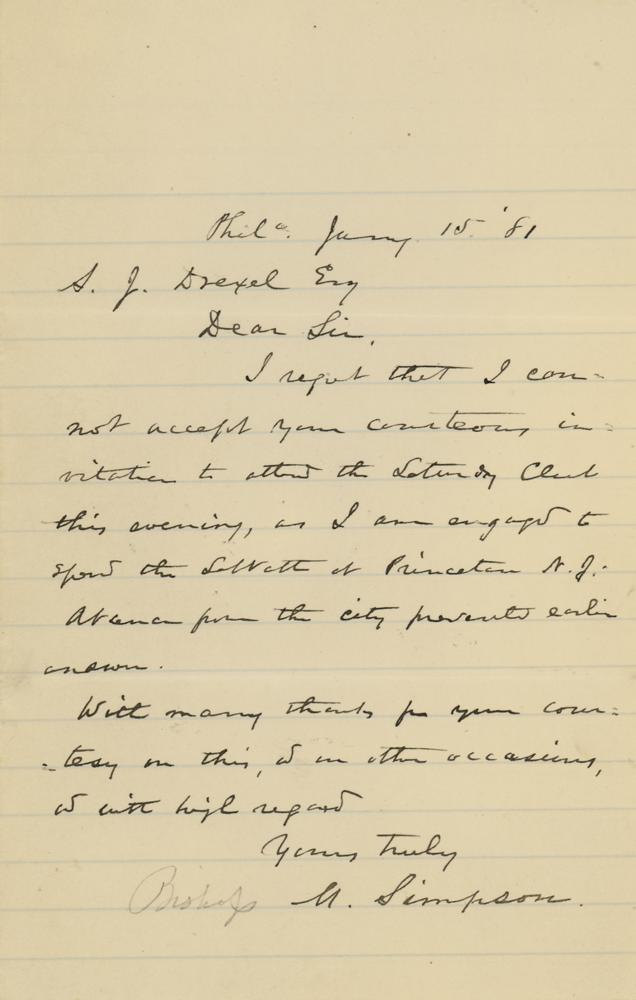 Phila. Jany. 15. '81
A. J. Drexel Esq
Dear Sir,
I regret that I can-
not accept your courteous in-
vitation to attend the Saturday Club
this evening, as I am engaged to
spend the Sabbath at Princeton N. J.
Absence from the city prevented earlier
answer.
With many thanks for your cour-
-tesy on this, & on other occasions,
& with high regard
Yours truly
Bishop M. Simpson.